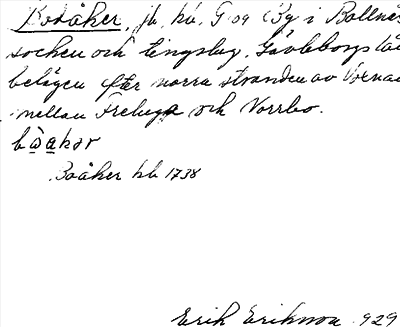 Bosåker, jb, hd, G 09 C 3g i Bollnäs
socken och tingslag, Gävleborgs län
belägen efter norra stranden av Voxnan
mellan Freluga och Norrbo.
bὼakər
Boåker kb 1738
Erik Eriksson 929